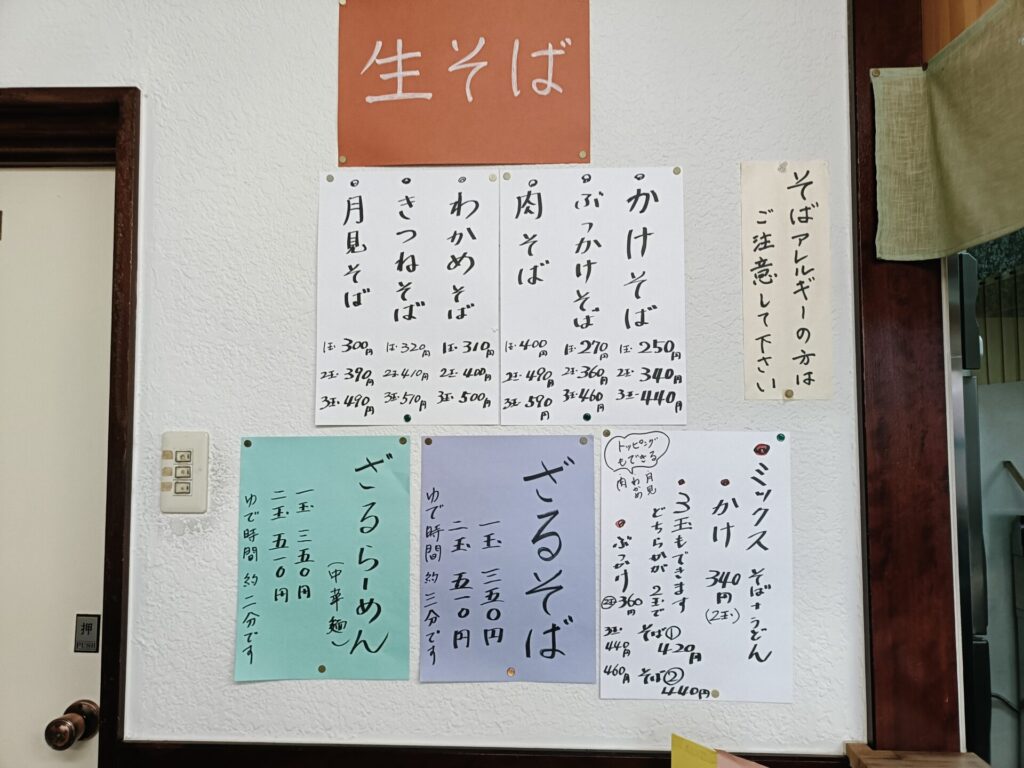 生そば
かけそば
1玉・250円
2玉・340円
3玉・440円
ぶっかけそば
1玉・270円
2玉・360円
3玉・460円
肉そば
1玉・400円
2玉・490円
3玉・590円
わかめそば
1玉・310円
2玉・400円
3玉・500円
きつねそば
1玉・320円
2玉・410円
3玉・570円
月見そば
1玉・300円
2玉・390円
3玉・490円
そばアレルギーの方は
ご注意して下さい
ミックス そば+うどん
かけ 340円(2玉)
3玉もできます
どちらかが 2玉で
そば① 420円
そば② 440円
トッピング
もできる
月見
わかめ
肉
ぶっかけ
2玉 360円
3玉 440円
460円
ざるそば
一玉 三五〇円
二玉 五一〇円
ゆで時間 約 三分です
ざるらーめん
(中華麺)
一玉 三五〇円
二玉 五一〇円
ゆで時間 約 二分です
押
PUSH